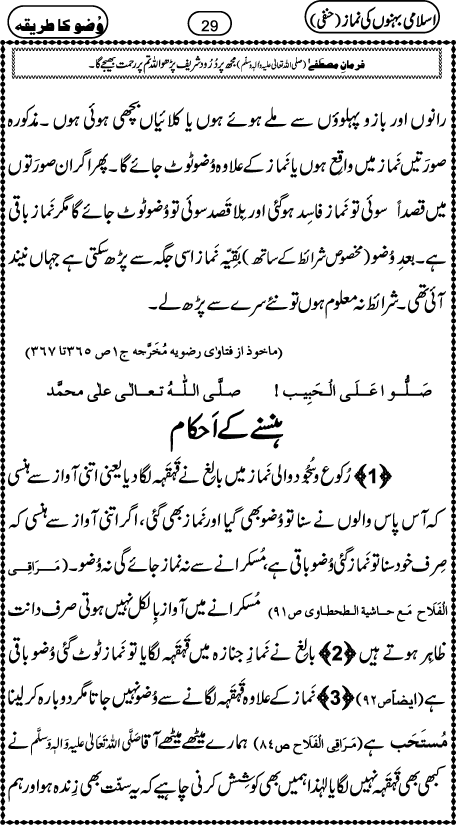 اسلامی بہنوں کی نماز (حنفی) 29 وُضو کا طریقہ
فرمانِ مصطفےٰ (صلی اللہ تعالیٰ علیہ والہٖ وسلم) مجھ پر دُرُود شریف پڑھو اللہ تم پر رحمت بھیجے گا۔
رانوں اور بازو پہلوؤں سے ملے ہوئے ہوں یا کلائیاں بچھی ہوئی ہوں ۔ مذکورہ
صورَتیں نماز میں واقِع ہوں یا نماز کے علاوہ وُضو ٹوٹ جائے گا۔ پھر اگر ان صورَتوں
میں قصداً سوئی تو نَماز فاسِد ہوگئی اور بِلا قصد سوئی تو وُضو ٹوٹ جائے گا مگر نَماز باقی
ہے۔ بعدِ وُضو (مخصوص شرائط کے ساتھ) بَقِیّہ نَماز اسی جگہ سے پڑھ سکتی ہے جہاں نیند
آئی تھی۔ شرائط نہ معلوم ہوں تو نئے سرے سے پڑھ لے۔
(ماخوذ از فتاوٰی رضویہ مُخَرَّجہ ج۱ ص ۳۶۵ تا ۳۶۷)
صَلُّوا عَلَی الْحَبِیب! صلَّی اللّٰہُ تعالیٰ علیٰ محمَّد
ہنسنے کے اَحکام
﴿1﴾ رُکوع و سُجُود والی نَماز میں بالِغ نے قَہقَہہ لگا دیا یعنی اتنی آواز سے ہنسی
کہ آس پاس والوں نے سنا تو وُضو بھی گیا اور نَماز بھی گئی، اگر اتنی آواز سے ہنسی کہ
صِرف خود سنا تو نَماز گئی وُضو باقی ہے، مُسکرانے سے نہ نَماز جائے گی نہ وُضو۔ (مَرَاقِی
الْفَلَاح مَع حاشیۃ الطحطاوی ص۹۱) مُسکرانے میں آواز بِالکل نہیں ہوتی صِرف دانت
ظاہِر ہوتے ہیں ﴿2﴾ بالِغ نے نَمازِ جنازہ میں قَہقَہہ لگایا تو نَماز ٹوٹ گئی وُضو باقی
ہے (ایضاًص۹۲) ﴿3﴾ نَماز کے علاوہ قَہقَہہ لگانے سے وُضو نہیں جاتا مگر دوبارہ کر لینا
مُستَحَب ہے (مَرَاقِی الْفَلَاح ص۸۴) ہمارے میٹھے میٹھے آقا صَلَّی اللّٰہُ تَعَالٰی عَلَیْہِ وَاٰلِہٖ وَسَلَّم نے
کبھی بھی قَہقَہہ نہیں لگایا لہٰذا ہمیں بھی کوشِش کرنی چاہیے کہ یہ سنّت بھی زندہ ہو اور ہم